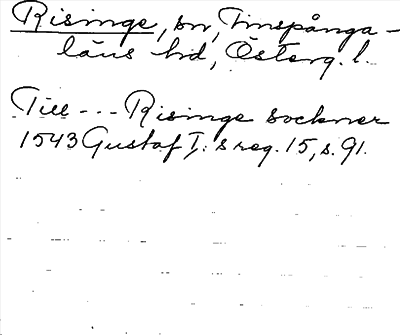 Risinge, sn, Finspånga-
läns hd, Österg. l.
Till --- Risinge sockner
1543 Gustaf I:s reg. 15, s. 91.